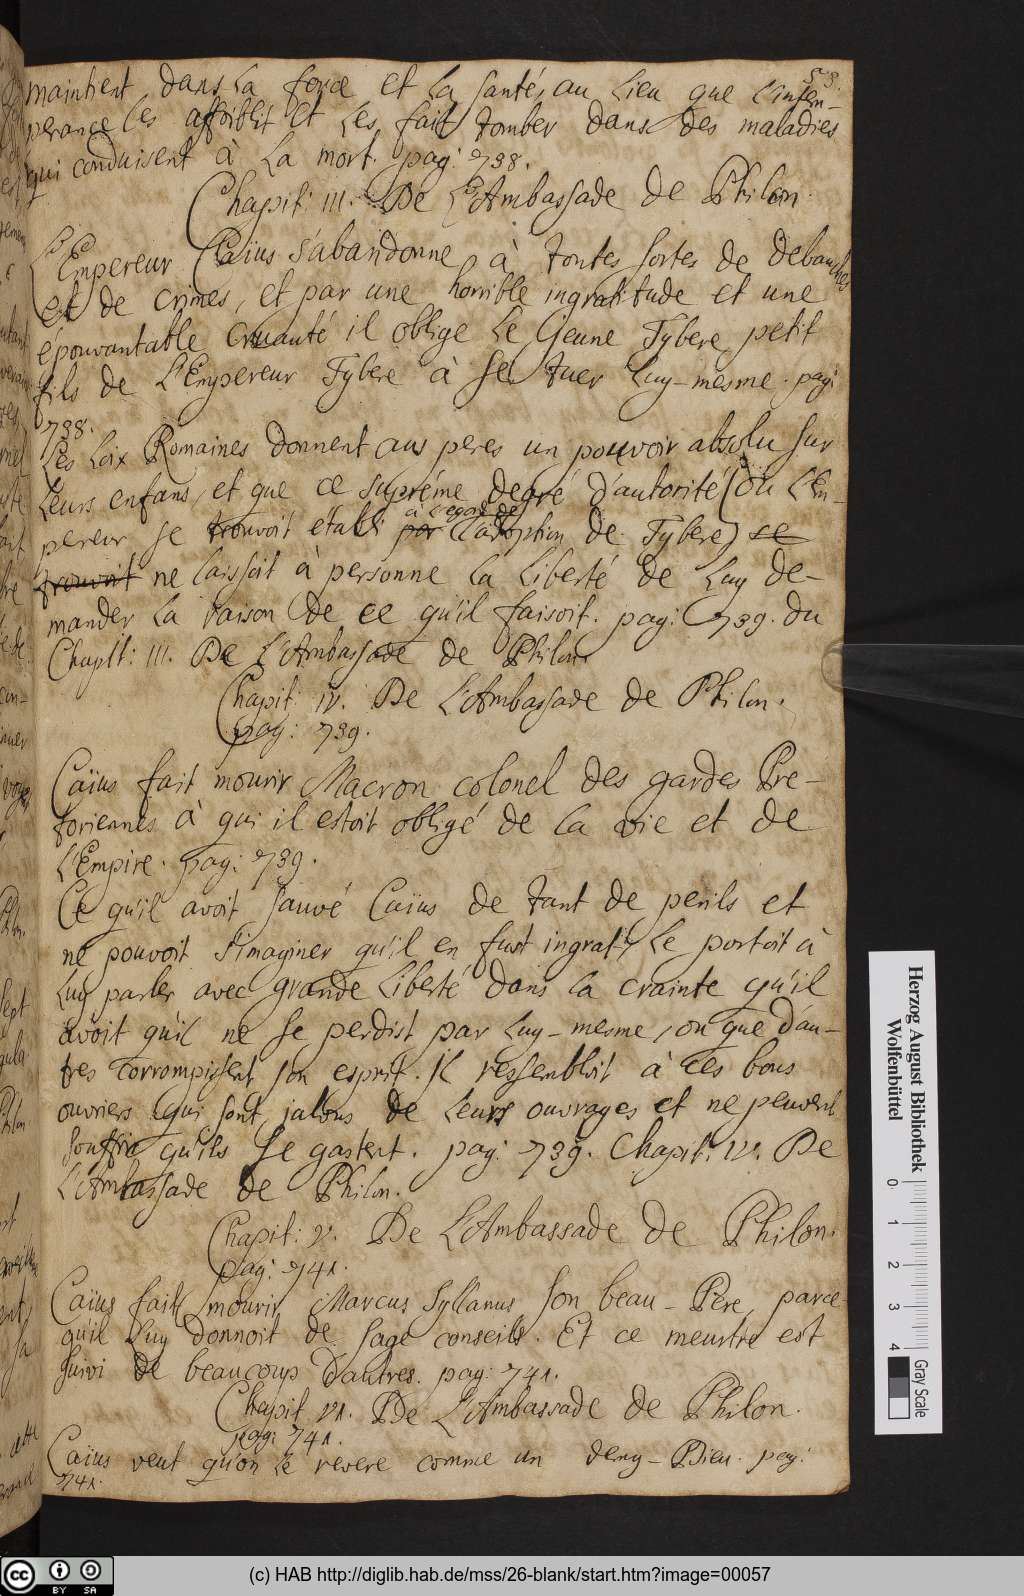 53.
maintient dans la force et la santé, au lieu que l'intem-
perance les affoiblit et les fait tomber dans des maladies
qui conduisent à la mort. pag: 738.
Chapit: III. De L'Ambassade de Philon.
L'Empereur Caïus s'abandonne à toutes sortes de debauches
et de crimes, et par une horrible ingratitude et une
epouvantable cruauté il oblige le Jeune Tybere petit
fils de L'Empereur Tybere à se tuer luy-mesme. pag:
738.
Les Loix Romaines donnent aus peres un pouvoir absolu sur
leurs enfans, et que ce supréme degré d'autorité (où L'Em-
pereur se trouvoit établi par à l'egard de l'adoption de Tybere) se
trouvoit ne laissoit à personne la liberté de luy de-
mander la raison de ce qu'il faisoit. pag: 739. du
Chapit: III. De L'Ambassade de Philon.
Chapit: IV. De L'Ambassade de Philon.
pag: 739.
Caïus fait mourir Macron colonel des gardes Pre-
toriennes à qui il estoit obligé de la vie et de
L'Empire. pag: 739.
Ce qu'il avoit sauvé Caïus de tant de perils et
ne pouvoit s'imaginer qu'il en fust ingrat, le portoit à
luy parler avec grande liberté dans la crainte qu'il
avoit qu'il ne se perdist par luy-mesme, ou que d'au-
tres corrompissent son esprit. Il ressembloit à ces bons
ouvriers qui sont jalous de leurs ouvrages et ne peuvent
souffrir qu'ils se gastent. pag: 739. Chapit: IV. De
L'Ambassade de Philon.
Chapit: V. De L'Ambassade de Philon.
pag: 741.
Caïus fait mourir Marcus Syllanus son beau-Pere, parce-
qu'il luy donnoit de sage conseils. Et ce meurtre est
suivi de beaucoup d'autres. pag: 741.
Chapit VI. De L'Ambassade de Philon.
pag: 741.
Caïus veut qu'on le revere comme un demy-Dieu. pag:
741.
Herzog August Bibliothek
Wolfenbüttel
0 1 2 3 4
Gray Scale
cc BY SA
(c) HAB http://diglib.hab.de/mss/26-blank/start.htm?image=00057